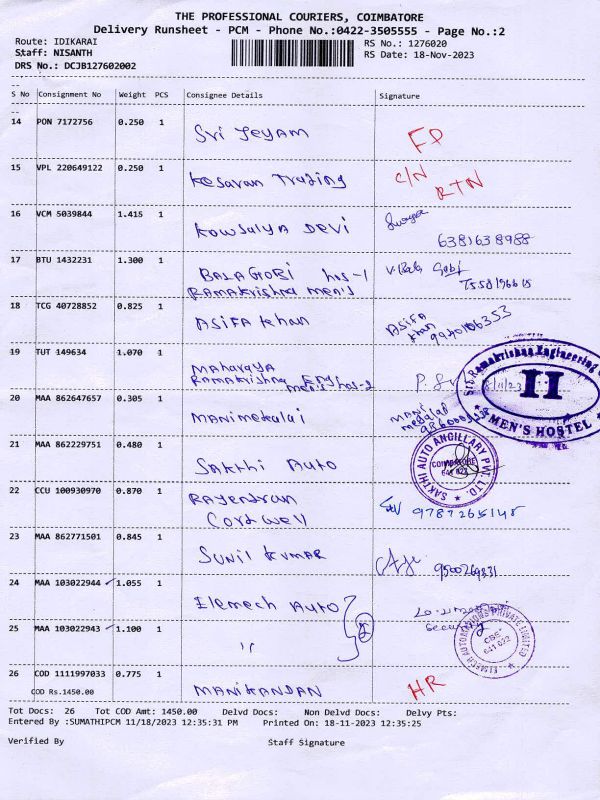 THE PROFESSIONAL COURIERS, COIMBATORE
Delivery Runsheet - PCM - Phone No.:0422-3505555 - Page No.:2
Route: IDIKARAI
RS No.: 1276020
Staff: NISANTH
RS Date: 18-Nov-2023
DRS No.: DCJB127602002
S No Consignment No Weight PCS Consignee Details Signature
14 PON 7172756 0.250 1 Sri Jeyam
15 VPL 220649122 0.250 1 Kesavan Trading C/N
RTN
16 VCM 5039844 1.415 1 Kowsalya Devi
6381638988
17 BTU 1432231 1.300 1 BALAGOBI hos-1
Ramakrishna men's
18 TCG 40728852 0.825 1 Asifa khan Asifa
khan
19 TUT 149634 1.070 1
Ramakrishna Eng
men's hos-2
II
MEN'S HOSTEL
20 MAA 862647657 0.305 1 Manimekalai
21 MAA 862229751 0.480 1 Sakthi Auto
SAKTHI AUTO ANCILLARY PVT. LTD.
COIMBATORE
22 CCU 100930970 0.870 1 Rajendran
9787265148
23 MAA 862771501 0.845 1 Sunil Kumar
24 MAA 103022944 1.055 1 Elemech Auto
security
25 MAA 103022943 1.100 1 "
CBE
641 022
26 COD 1111997033 0.775 1 Manikandan HR
COD Rs.1450.00
Tot Docs: 26 Tot COD Amt: 1450.00 Delvd Docs: Non Delvd Docs: Delvy Pts:
Entered By :SUMATHIPCM 11/18/2023 12:35:31 PM Printed On: 18-11-2023 12:35:25
Verified By Staff Signature